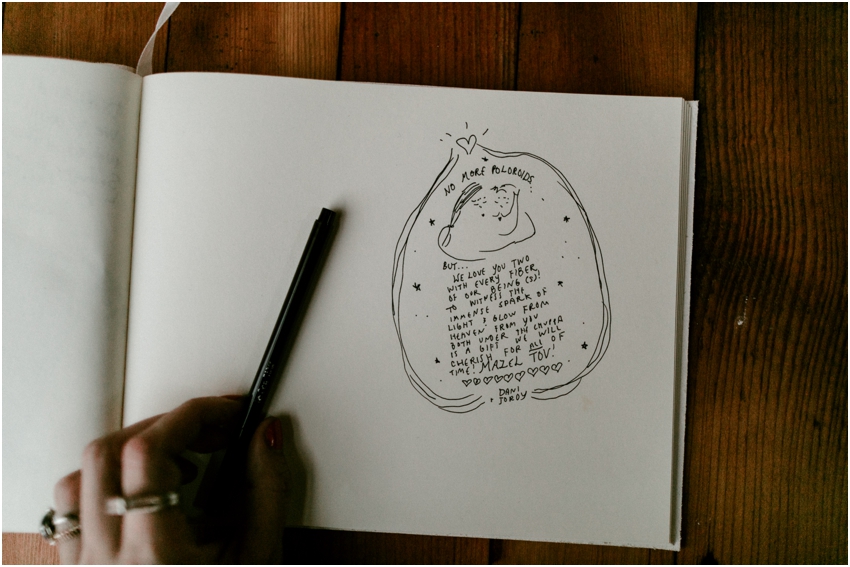 NO MORE POLOROIDS
BUT...
WE LOVE YOU TWO
WITH EVERY FIBER
OF OUR BEING(S)!
TO WITNESS THE
IMMENSE SPARK OF
LIGHT & GLOW FROM
HEAVEN FROM YOU
BOTH UNDER THE CHUPPA
IS A GIFT WE WILL
CHERISH FOR ALL OF
TIME! MAZEL TOV!
DANI
+ JORDY